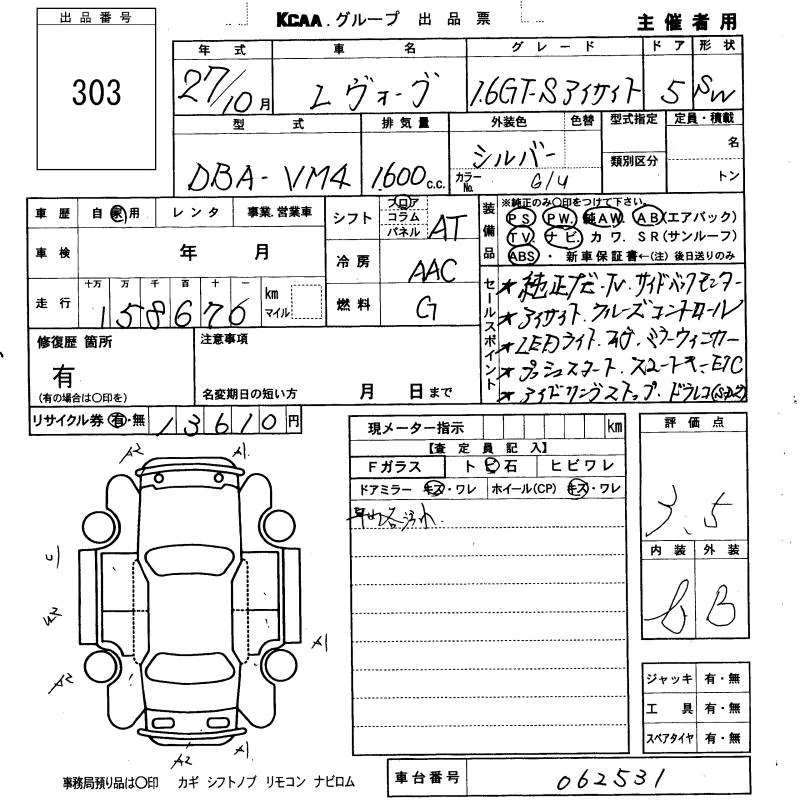 出品番号
303
KCAA.グループ 出品票
主催者用
年式 車名 グレード ドア 形状
27/10月 レヴォーグ 1.6GT-Sアイサイト 5 SW
型式 排気量 外装色 色替 型式指定 定員・積載
DBA-VM4 1600c.c. シルバー 名
類別区分
カラーNo. G1U トン
車歴 自家用 レンタ 事業.営業車
車検 年 月
十万 万 千 百 十 一
走行 158676 km マイル
シフト フロア コラム パネル AT
冷房 AAC
燃料 G
装備品
※純正のみ○印をつけて下さい。
PS PW. 純AW. AB(エアバック)
TV. ナビ. カワ. SR(サンルーフ)
ABS・新車保証書←(注)後日送りのみ
セールスポイント
★純正ナビ.TV.サイドバックモニター
★アイサイト.クルーズコントロール
★LEDライト.フォグ.ミラーウィンカー
★プッシュスタート.スマートキーETC
★アイドリングストップ.ドラレコ
修復歴 箇所
有
(有の場合は○印を)
注意事項
名変期日の短い方 月 日まで
リサイクル券 有・無 13610円
現メーター指示 km
【査定員記入】
Fガラス ト ビ 石 ヒビワレ
ドアミラー キズ・ワレ ホイール(CP) キズ・ワレ
評価点
3.5
内装 外装
B
A2 A1
U
W2
A1
A2
A2 A1
ジャッキ 有・無
工具 有・無
スペアタイヤ 有・無
事務局預り品は○印 カギ シフトノブ リモコン ナビロム
車台番号 062531